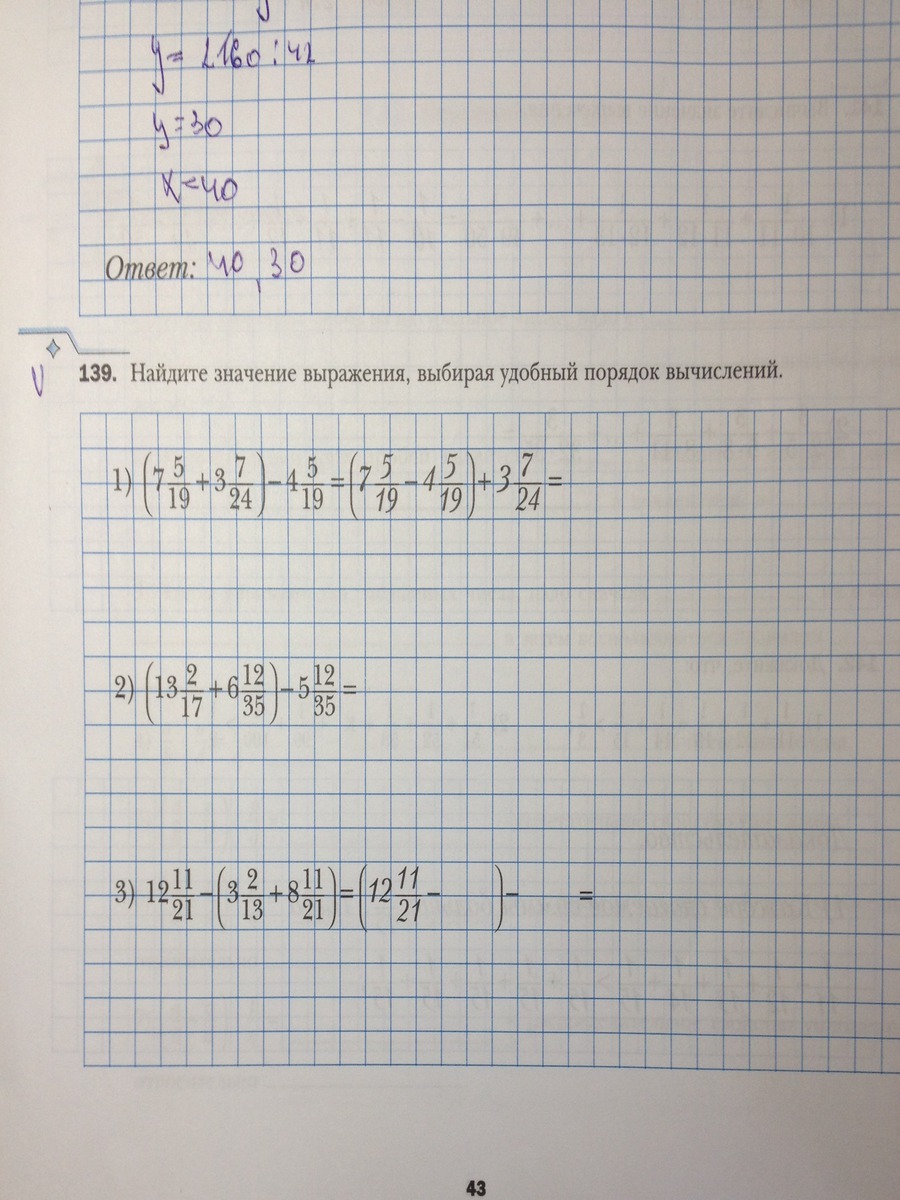 y = 2160 : 42
y = 30
x = 40
Ответ: 40, 30
V 139. Найдите значение выражения, выбирая удобный порядок вычислений.
1) (7 5/19 + 3 7/24) − 4 5/19 = (7 5/19 − 4 5/19) + 3 7/24 =
2) (13 2/17 + 6 12/35) − 5 12/35 =
3) 12 11/21 − (3 2/13 + 8 11/21) = (12 11/21 − ) − =
43